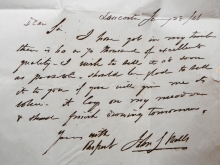 Lancaster Jany 23 /61
Dear Sir I have got in my tent
there is 60 or 70 thousand of excellent
quality. I wish to sell it as soon
as possible. Should be glad to sell
it to you if you will give me to
it lay on my
& shand finish evening tomorrow.
Yours with
Respect John J Wells